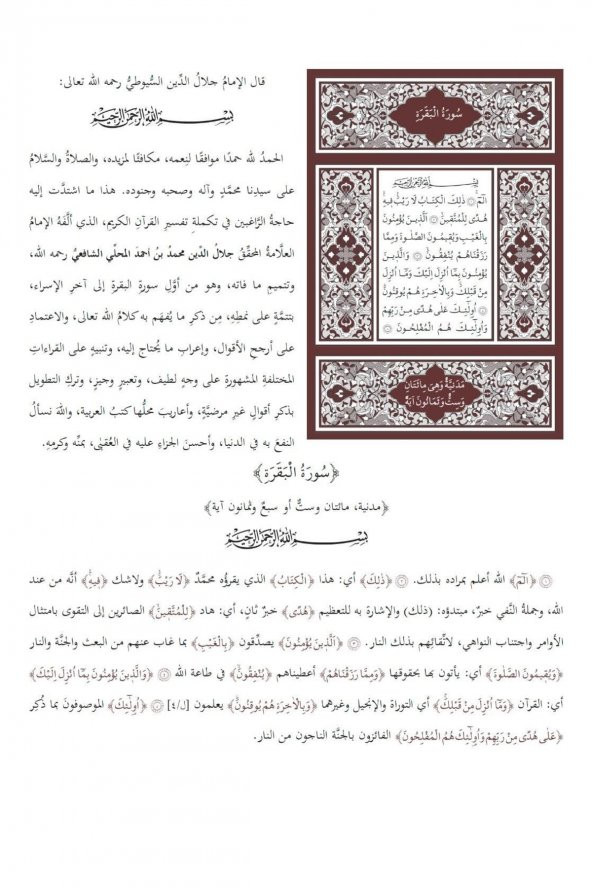 قال الإمامُ جلالُ الدِّين السُّيوطيُّ رحمه الله تعالى:
بِسْمِ اللهِ الرَّحْمٰنِ الرَّحِيمِ
الحمدُ لله حمدًا موافقًا لنِعمه، مكافئًا لمزيده، والصلاةُ والسَّلامُ
على سيدِنا محمَّدٍ وآله وصحبه وجنوده. هذا ما اشتدَّت إليه
حاجةُ الرَّاغبين في تكملةِ تفسيرِ القرآنِ الكريم، الذي ألَّفَهُ الإمامُ
العلاَّمةُ المحقِّقُ جلالُ الدِّين محمدُ بنُ أحمدَ المحلّي الشافعيُّ رحمه الله،
وتتميمِ ما فاته، وهو من أوَّلِ سورةِ البقرةِ إلى آخرِ الإسراء،
بتتمَّةٍ على نمطِهِ، مِن ذكرِ ما يُفهَم به كلامُ الله تعالى، والاعتمادِ
على أرجحِ الأقوال، وإعرابِ ما يُحتاج إليه، وتنبيهٍ على القراءاتِ
المختلفةِ المشهورةِ على وجهٍ لطيف، وتعبيرٍ وجيز، وتركِ التطويل
بذكرِ أقوالٍ غيرِ مرضيَّةٍ، وأعاريبَ محلُّها كتبُ العربية، واللهَ نسألُ
النفعَ به في الدنيا، وأحسنَ الجزاءِ عليه في العُقبَى، بمنِّه وكرمِهِ.
سُورَةُ الْبَقَرَةِ
بِسْمِ اللهِ الرَّحْمٰنِ الرَّحِيمِ
الٓمٓ ۝ ذٰلِكَ الْكِتَابُ لَا رَيْبَۚ فِيهِۚ
هُدًى لِلْمُتَّقِينَ ۝ اَلَّذِينَ يُؤْمِنُونَ
بِالْغَيْبِ وَيُقِيمُونَ الصَّلٰوةَ وَمِمَّا
رَزَقْنَاهُمْ يُنْفِقُونَ ۝ وَالَّذِينَ
يُؤْمِنُونَ بِمَٓا اُنْزِلَ اِلَيْكَ وَمَٓا اُنْزِلَ
مِنْ قَبْلِكَۚ وَبِالْاٰخِرَةِ هُمْ يُوقِنُونَ ۝
اُو۬لٰٓئِكَ عَلٰى هُدًى مِنْ رَبِّهِمْ
وَاُو۬لٰٓئِكَ هُمُ الْمُفْلِحُونَ ۝
مَدَنِيَّةٌ وَهِيَ مِائَتَانِ
وَسِتٌّ وَثَمَانُونَ آيَةً
﴿سُورَةُ الْبَقَرَةِ﴾
﴿مدنية، مائتان وستٌّ أو سبعٌ وثمانون آية﴾
بِسْمِ اللهِ الرَّحْمٰنِ الرَّحِيمِ
۝ ﴿الٓمٓ﴾ الله أعلم بمراده بذلك. ۝ ﴿ذٰلِكَ﴾ أي: هذا ﴿الْكِتَابُ﴾ الذي يقرؤه محمَّدٌ ﴿لَا رَيْبَۚ﴾ ولاشك ﴿فِيهِۚ﴾ أنَّه من عند
الله، وجملةُ النَّفي خبرٌ، مبتدؤه: (ذلك) والإشارة به للتعظيم ﴿هُدًى﴾ خبرٌ ثانٍ، أي: هادٍ ﴿لِلْمُتَّقِينَۙ﴾ الصائرين إلى التقوى بامتثال
الأوامر واجتناب النواهي، لاتِّقائِهم بذلك النار. ۝ ﴿اَلَّذِينَ يُؤْمِنُونَ﴾ يصدِّقون ﴿بِالْغَيْبِ﴾ بما غاب عنهم من البعث والجنَّة والنار
﴿وَيُقِيمُونَ الصَّلٰوةَ﴾ أي: يأتون بها بحقوقها ﴿وَمِمَّا رَزَقْنَاهُمْ﴾ أعطيناهم ﴿يُنْفِقُونَۙ﴾ في طاعة الله ۝ ﴿وَالَّذِينَ يُؤْمِنُونَ بِمَٓا اُنْزِلَ اِلَيْكَ﴾
أي: القرآن ﴿وَمَٓا اُنْزِلَ مِنْ قَبْلِكَۚ﴾ أي التوراة والإنجيل وغيرهما ﴿وَبِالْاٰخِرَةِ هُمْ يُوقِنُونَۜ﴾ يعلمون [ل/٤] ۝ ﴿اُو۬لٰٓئِكَ﴾ الموصوفون بما ذُكِر
﴿عَلٰى هُدًى مِنْ رَبِّهِمْ وَاُو۬لٰٓئِكَ هُمُ الْمُفْلِحُونَ﴾ الفائزون بالجنَّة الناجون من النار.